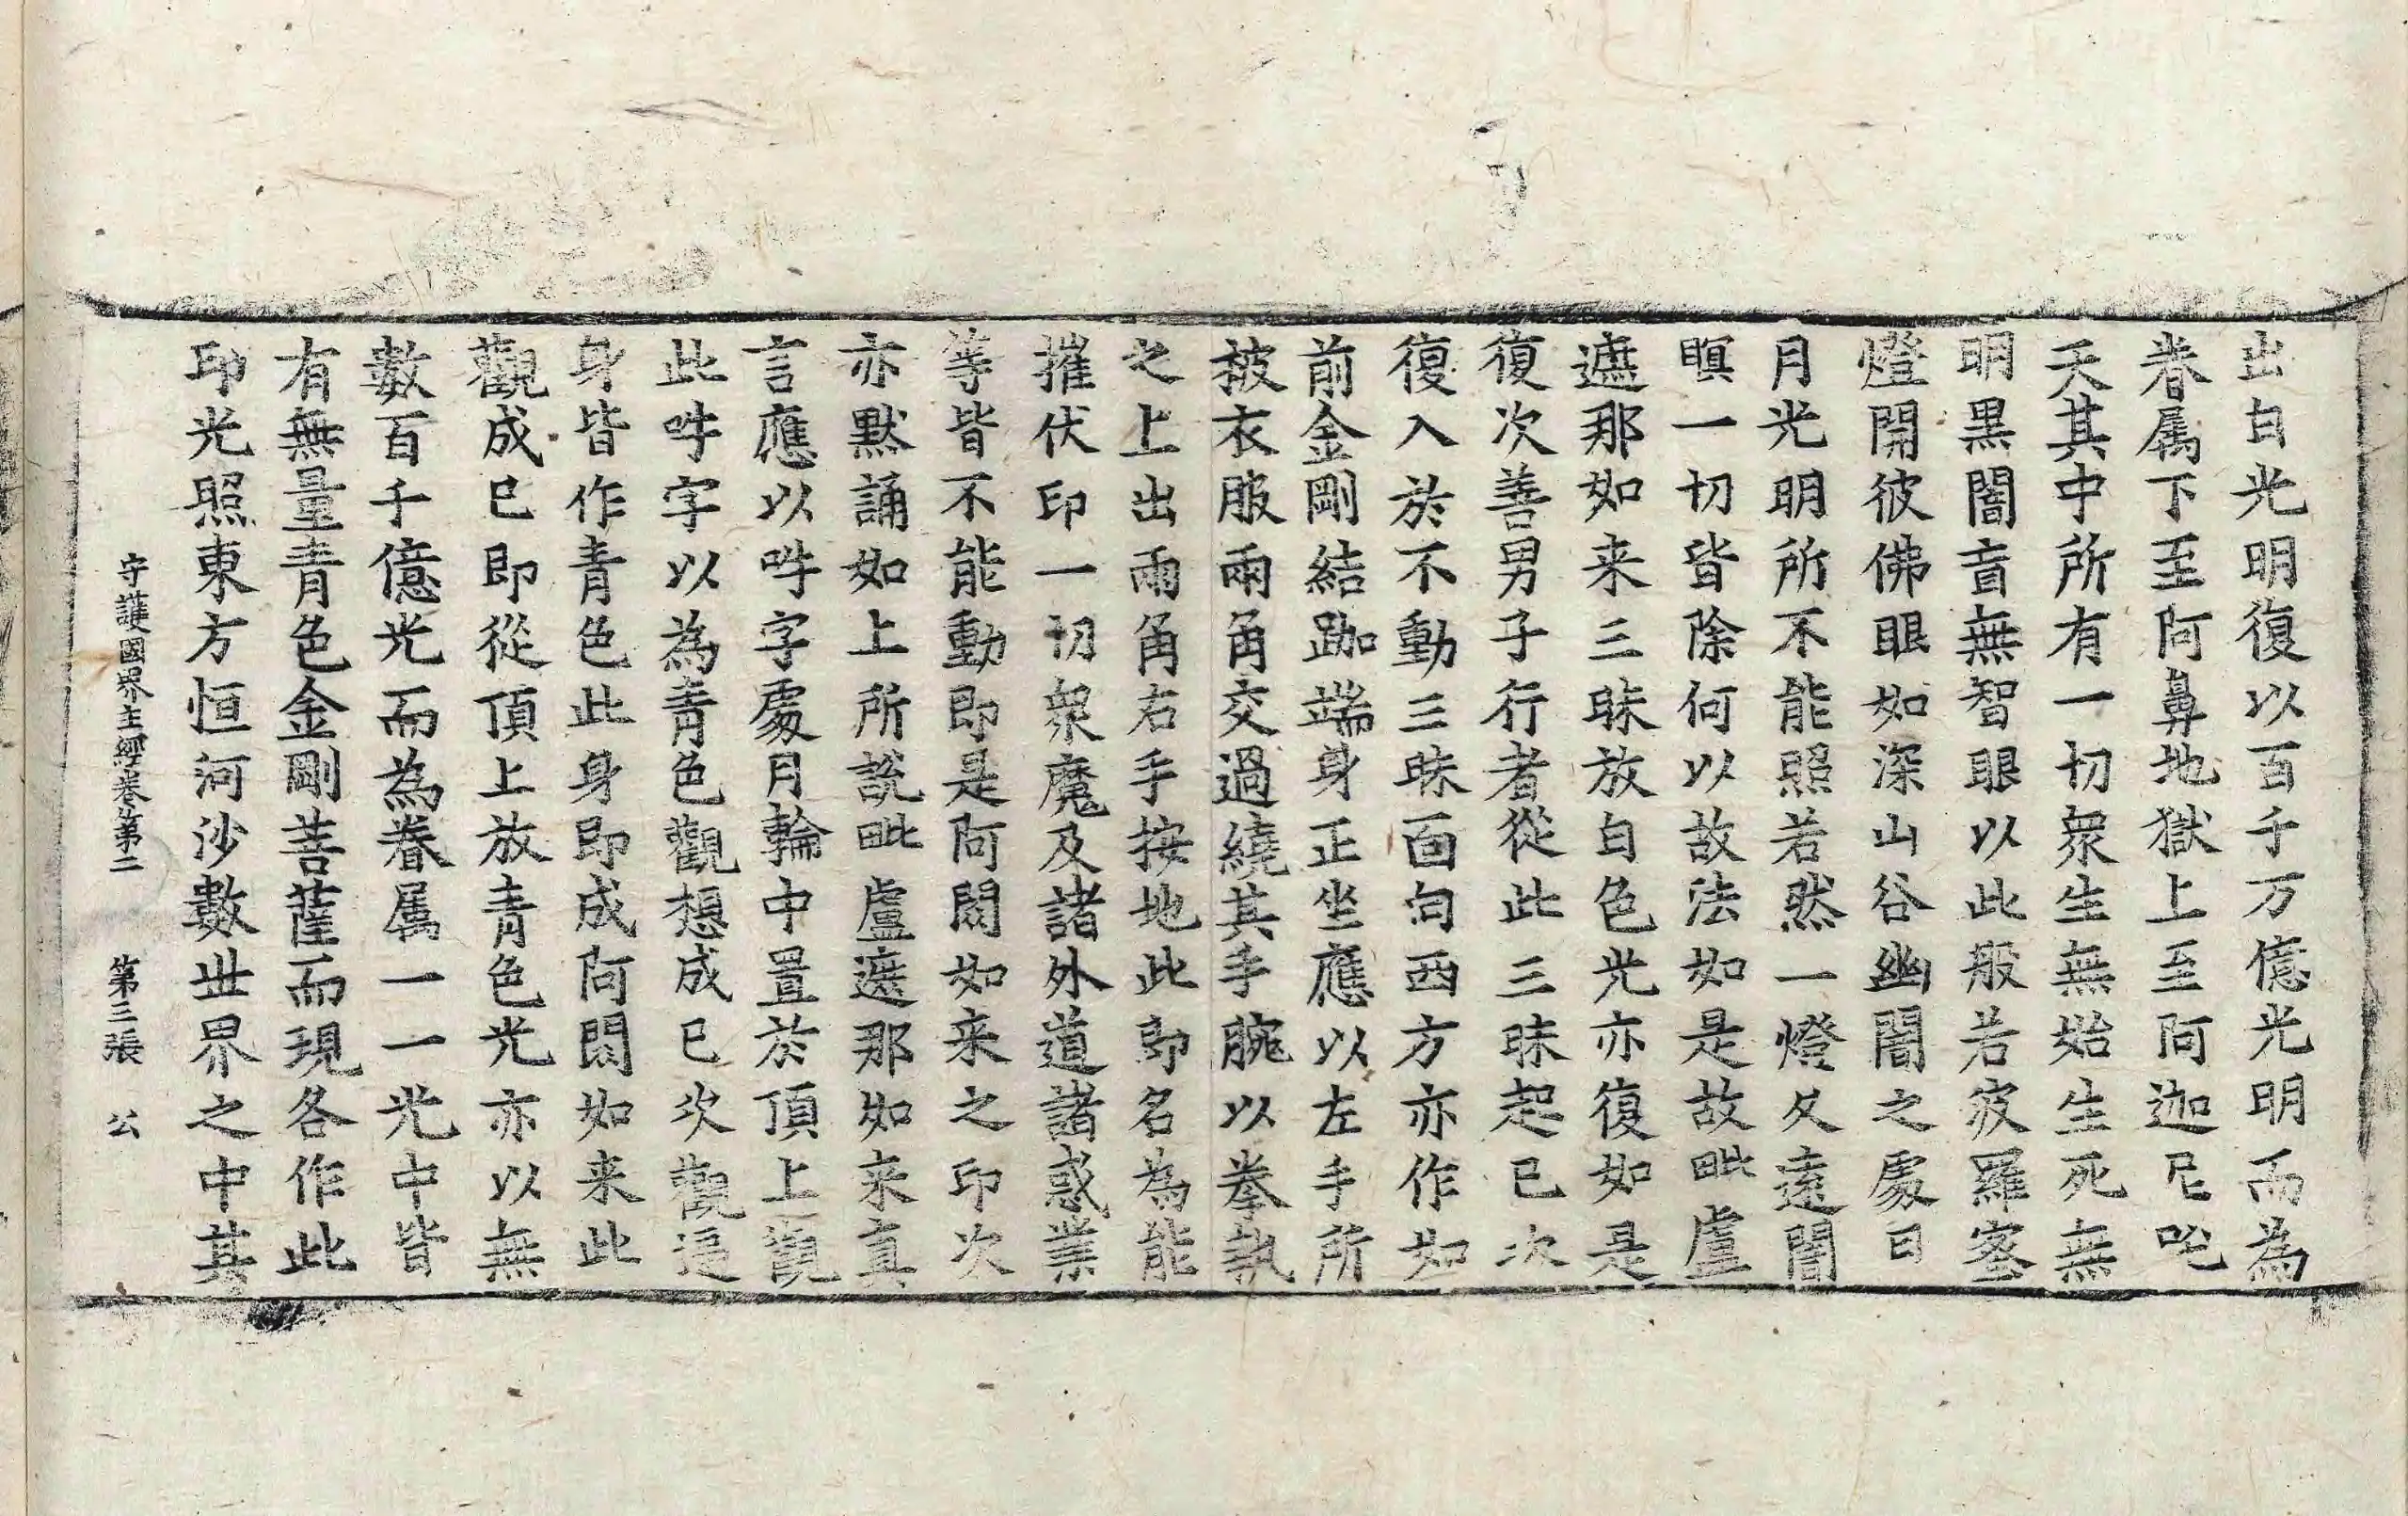 出白光明復以百千万億光明而為
眷属下至阿鼻地獄上至阿迦尼吒
天其中所有一切衆生無始生死無
明黒闇盲無智眼以此般若波羅蜜
燈開彼佛眼如深山谷幽闇之處日
月光明所不能照若然一燈久遠闇
瞑一切皆除何以故法如是故毗盧
遮那如来三昧放白色光亦復如是
復次善男子行者從此三昧起已次
復入於不動三昧面向西方亦作如
前金剛結跏端身正坐應以左手所
披衣服兩角交過繞其手腕以拳執
之上出兩角右手按地此即名為能
摧伏印一切衆魔及諸外道諸惑業
等皆不能動即是阿閦如来之印次
亦黙誦如上所說毗盧遮那如来真
言應以吽字處月輪中置於頂上觀
此吽字以為青色觀想成已次觀遍
身皆作青色此身即成阿閦如来此
觀成已即從頂上放青色光亦以無
數百千億光而為眷属一一光中皆
有無量青色金剛菩薩而現各作此
印光照東方恒河沙數世界之中其
守護國界主經卷第二 第三張 公